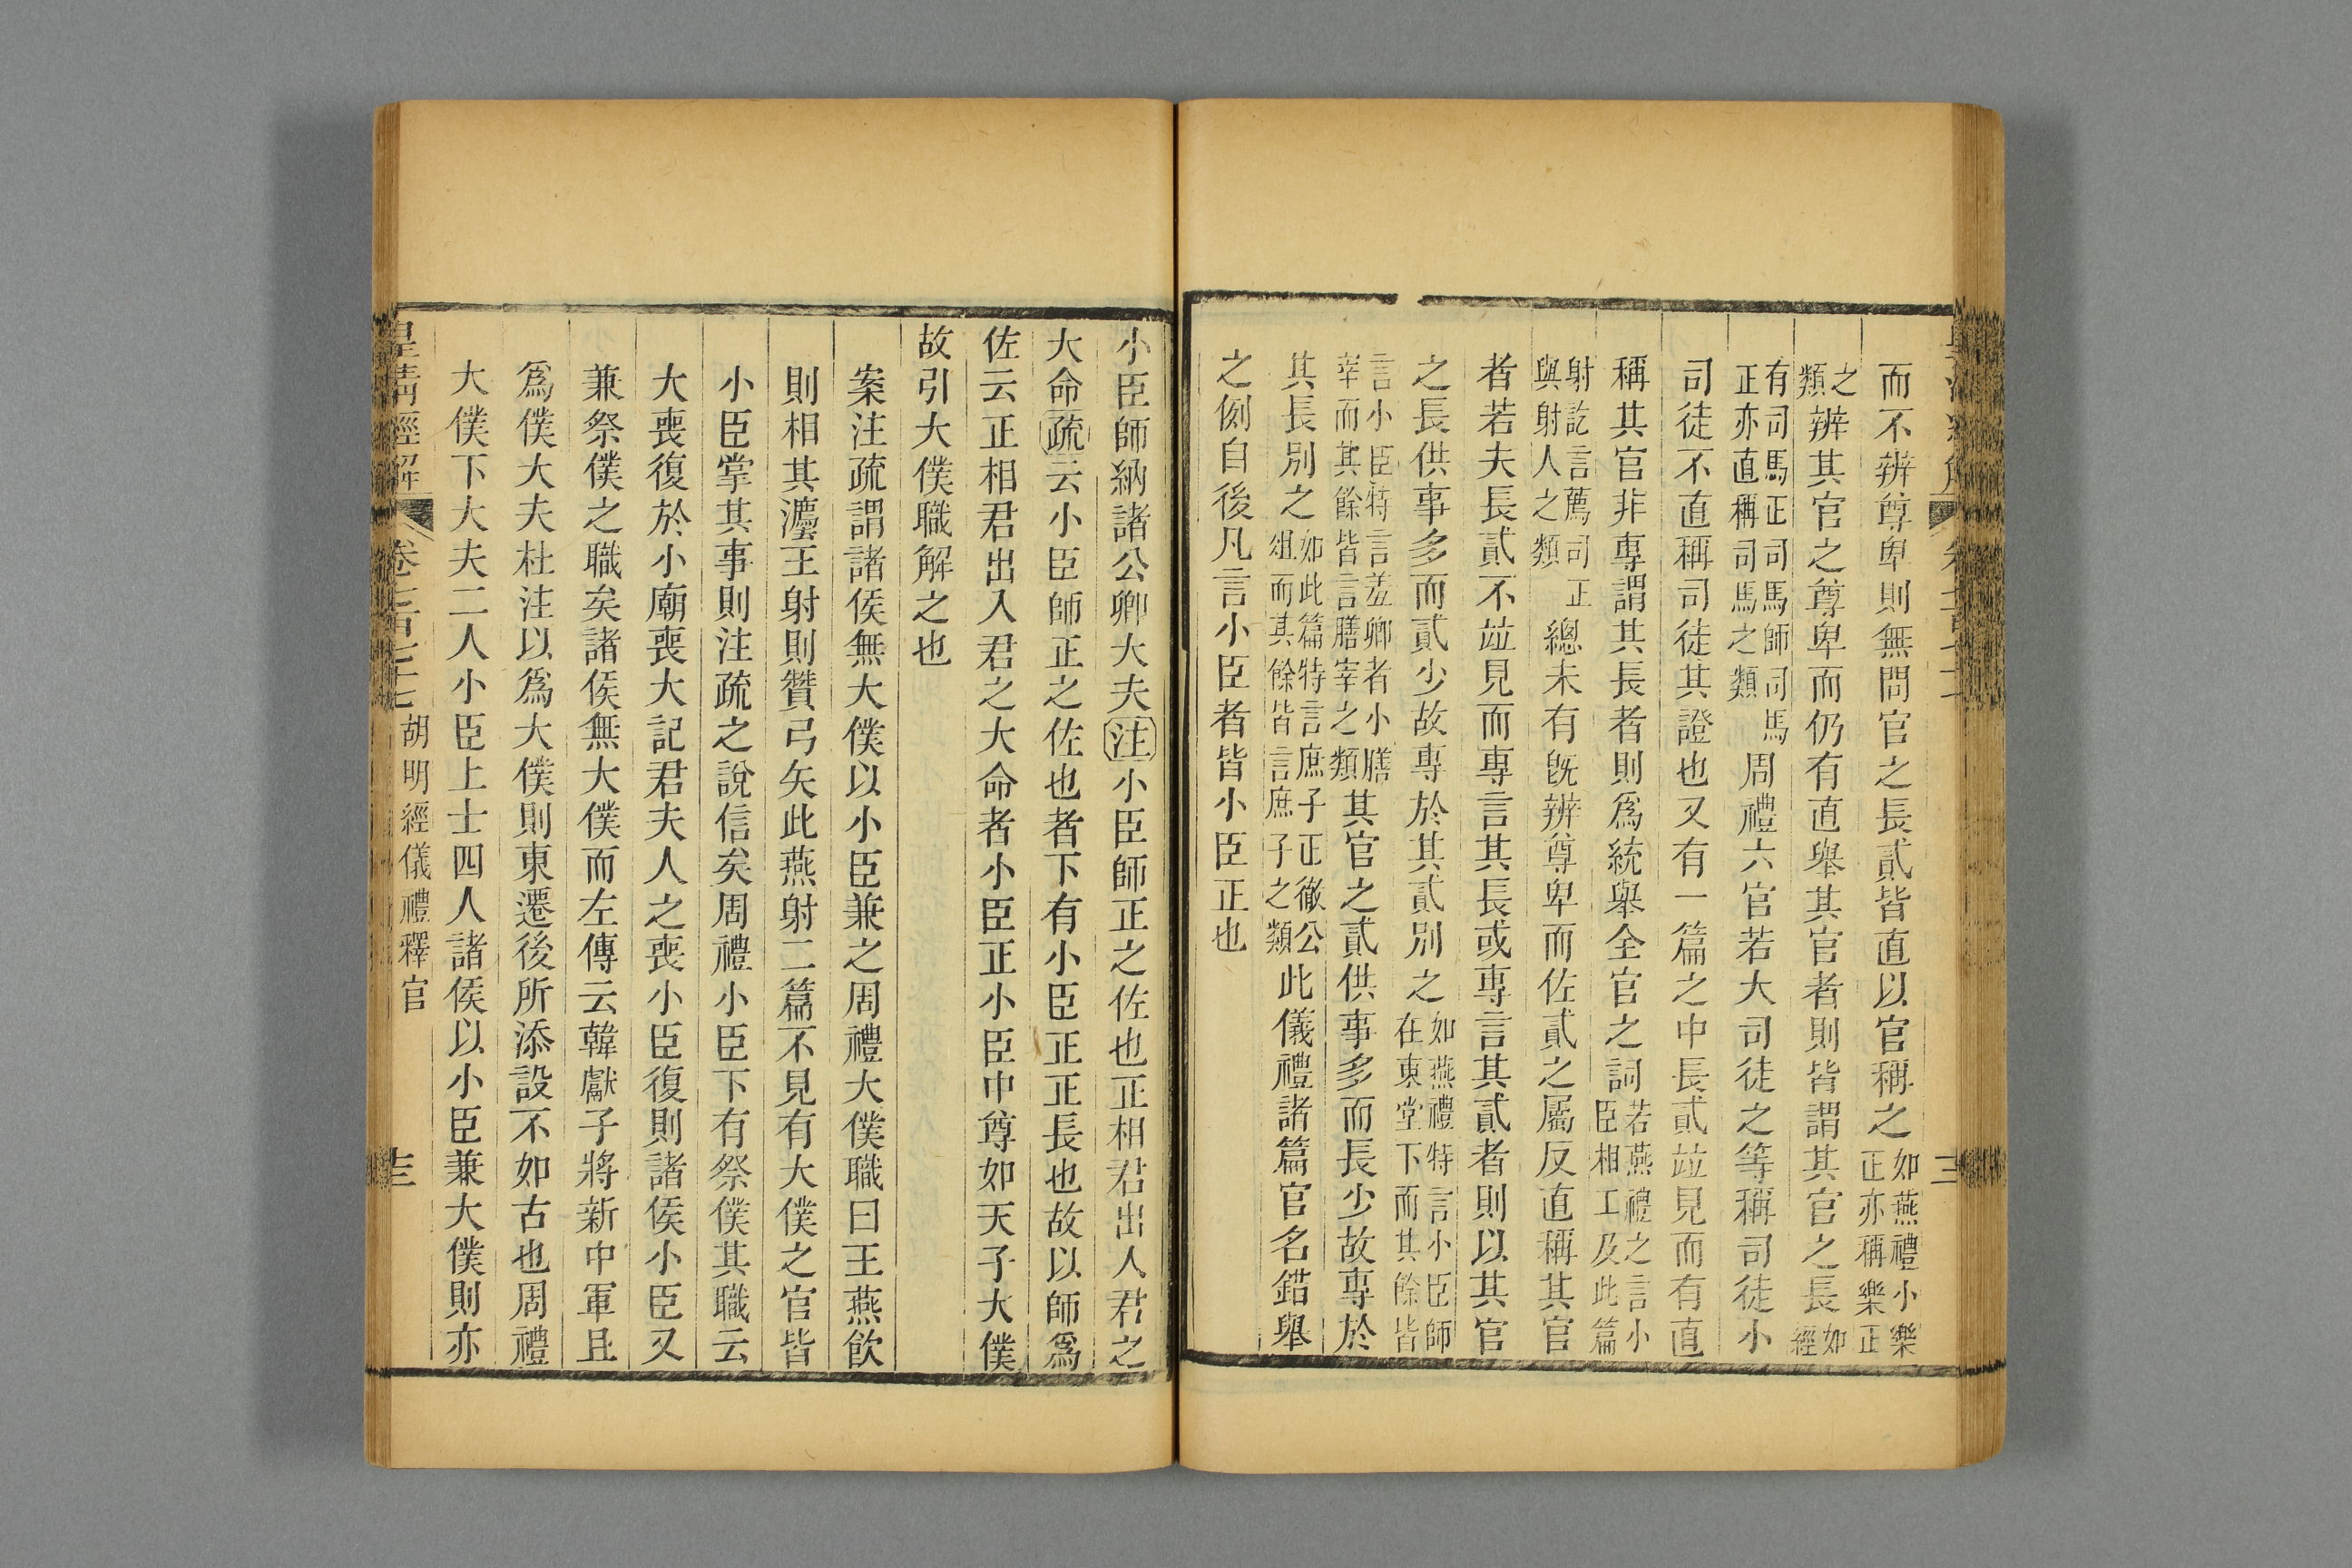 而不辨尊卑則無問官之長貳皆直以官稱之如燕禮小樂正亦稱樂正
之類辨其官之尊卑而仍有直舉其官者則皆謂其官之長如經
有司馬正司馬師司馬正亦直稱司馬之類周禮六官若大司徒之等稱司徒小
司徒不直稱司徒其證也又有一篇之中長貳竝見而有直
稱其官非專謂其長者則爲統舉全官之詞若燕禮之言小臣相工及此篇
射訖言薦司正與射人之類總未有旣辨尊卑而佐貳之屬反直稱其官
者若夫長貳不竝見而專言其長或專言其貳者則以其官
之長供事多而貳少故專於其貳別之如燕禮特言小臣師在東堂下而其餘皆
言小臣特言羞卿者小膳宰而其餘皆言膳宰之類其官之貳供事多而長少故專於
其長別之如此篇特言庶子正徹公俎而其餘皆言庶子之類此儀禮諸篇官名錯舉
之例自後凡言小臣者皆小臣正也
小臣師納諸公卿大夫注小臣師正之佐也正相君出入君之
大命疏云小臣師正之佐也者下有小臣正正長也故以師爲
佐云正相君出入君之大命者小臣正小臣中尊如天子大僕
故引大僕職解之也
案注疏謂諸侯無大僕以小臣兼之周禮大僕職曰王燕飲
則相其灋王射則贊弓矢此燕射二篇不見有大僕之官皆
小臣掌其事則注疏之說信矣周禮小臣下有祭僕其職云
大喪復於小廟喪大記君夫人之喪小臣復則諸侯小臣又
兼祭僕之職矣諸侯無大僕而左傳云韓獻子將新中軍且
爲僕大夫杜注以爲大僕則東遷後所添設不如古也周禮
大僕下大夫二人小臣上士四人諸侯以小臣兼大僕則亦
皇淸經解 卷七百七十七 胡明經儀禮釋官